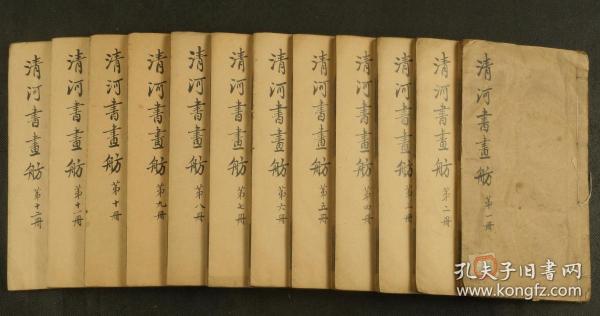 清河書畫舫 第一冊
清河書畫舫 第二冊
清河書畫舫 第一冊
清河書畫舫 第四冊
清河書畫舫 第五冊
清河書畫舫 第六冊
清河書畫舫 第七冊
清河書畫舫 第八冊
清河書畫舫 第九冊
清河書畫舫 第十冊
清河書畫舫 第十一冊
清河書畫舫 第十二冊
孔夫子旧书网
www.kongfz.com